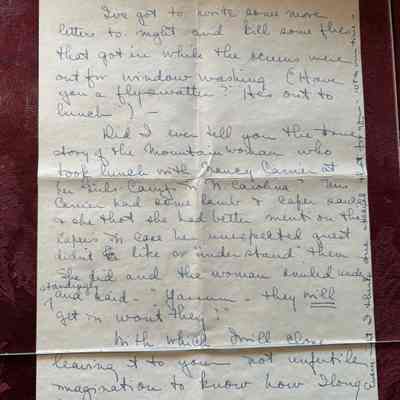 I've got to write some more
letters to night and kill some flies
that got in while the screens were
out for window washing (Have
you a fly swatter? He's out to
lunch) —
Did I ever tell you the true
story of the Mountain woman who
took lunch with Nancy Carrier at
her Girls Camp in N. Carolina?
Carrier had some lamb & caper sauce
& she that she had better mention the
capers in case her unexpected guest
didn't like or "understand" them
She did and the woman smiled under
standingly
and said – "Yassum – they will
get in wont they?"
With which I will close
leaving it to your not unfertile
imagination to know how I long